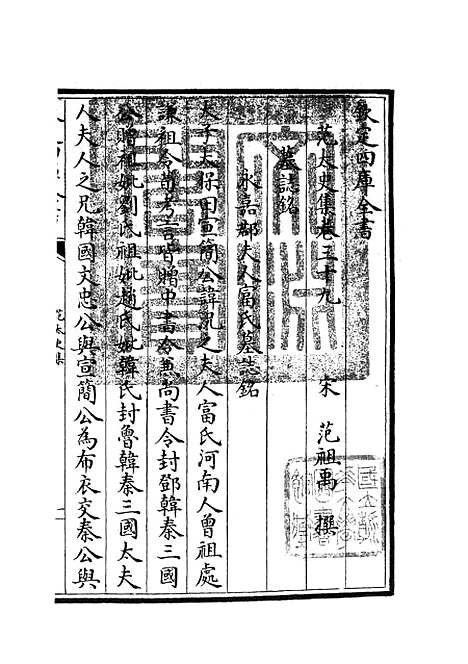 欽定四庫全書
范太史集卷三十九
宋 范祖禹 撰
墓誌銘
永嘉郡夫人富氏墓誌銘
太子太保田宣簡公諱況之夫人富氏河南人曾祖處
謙祖令荀考言皆贈中書令兼尚書令封鄧韓秦三國
公曾祖妣劉氏祖妣趙氏妣韓氏封魯韓秦三國太夫
人夫人之兄韓國文忠公與宣簡公為布衣交秦公與
范太史集